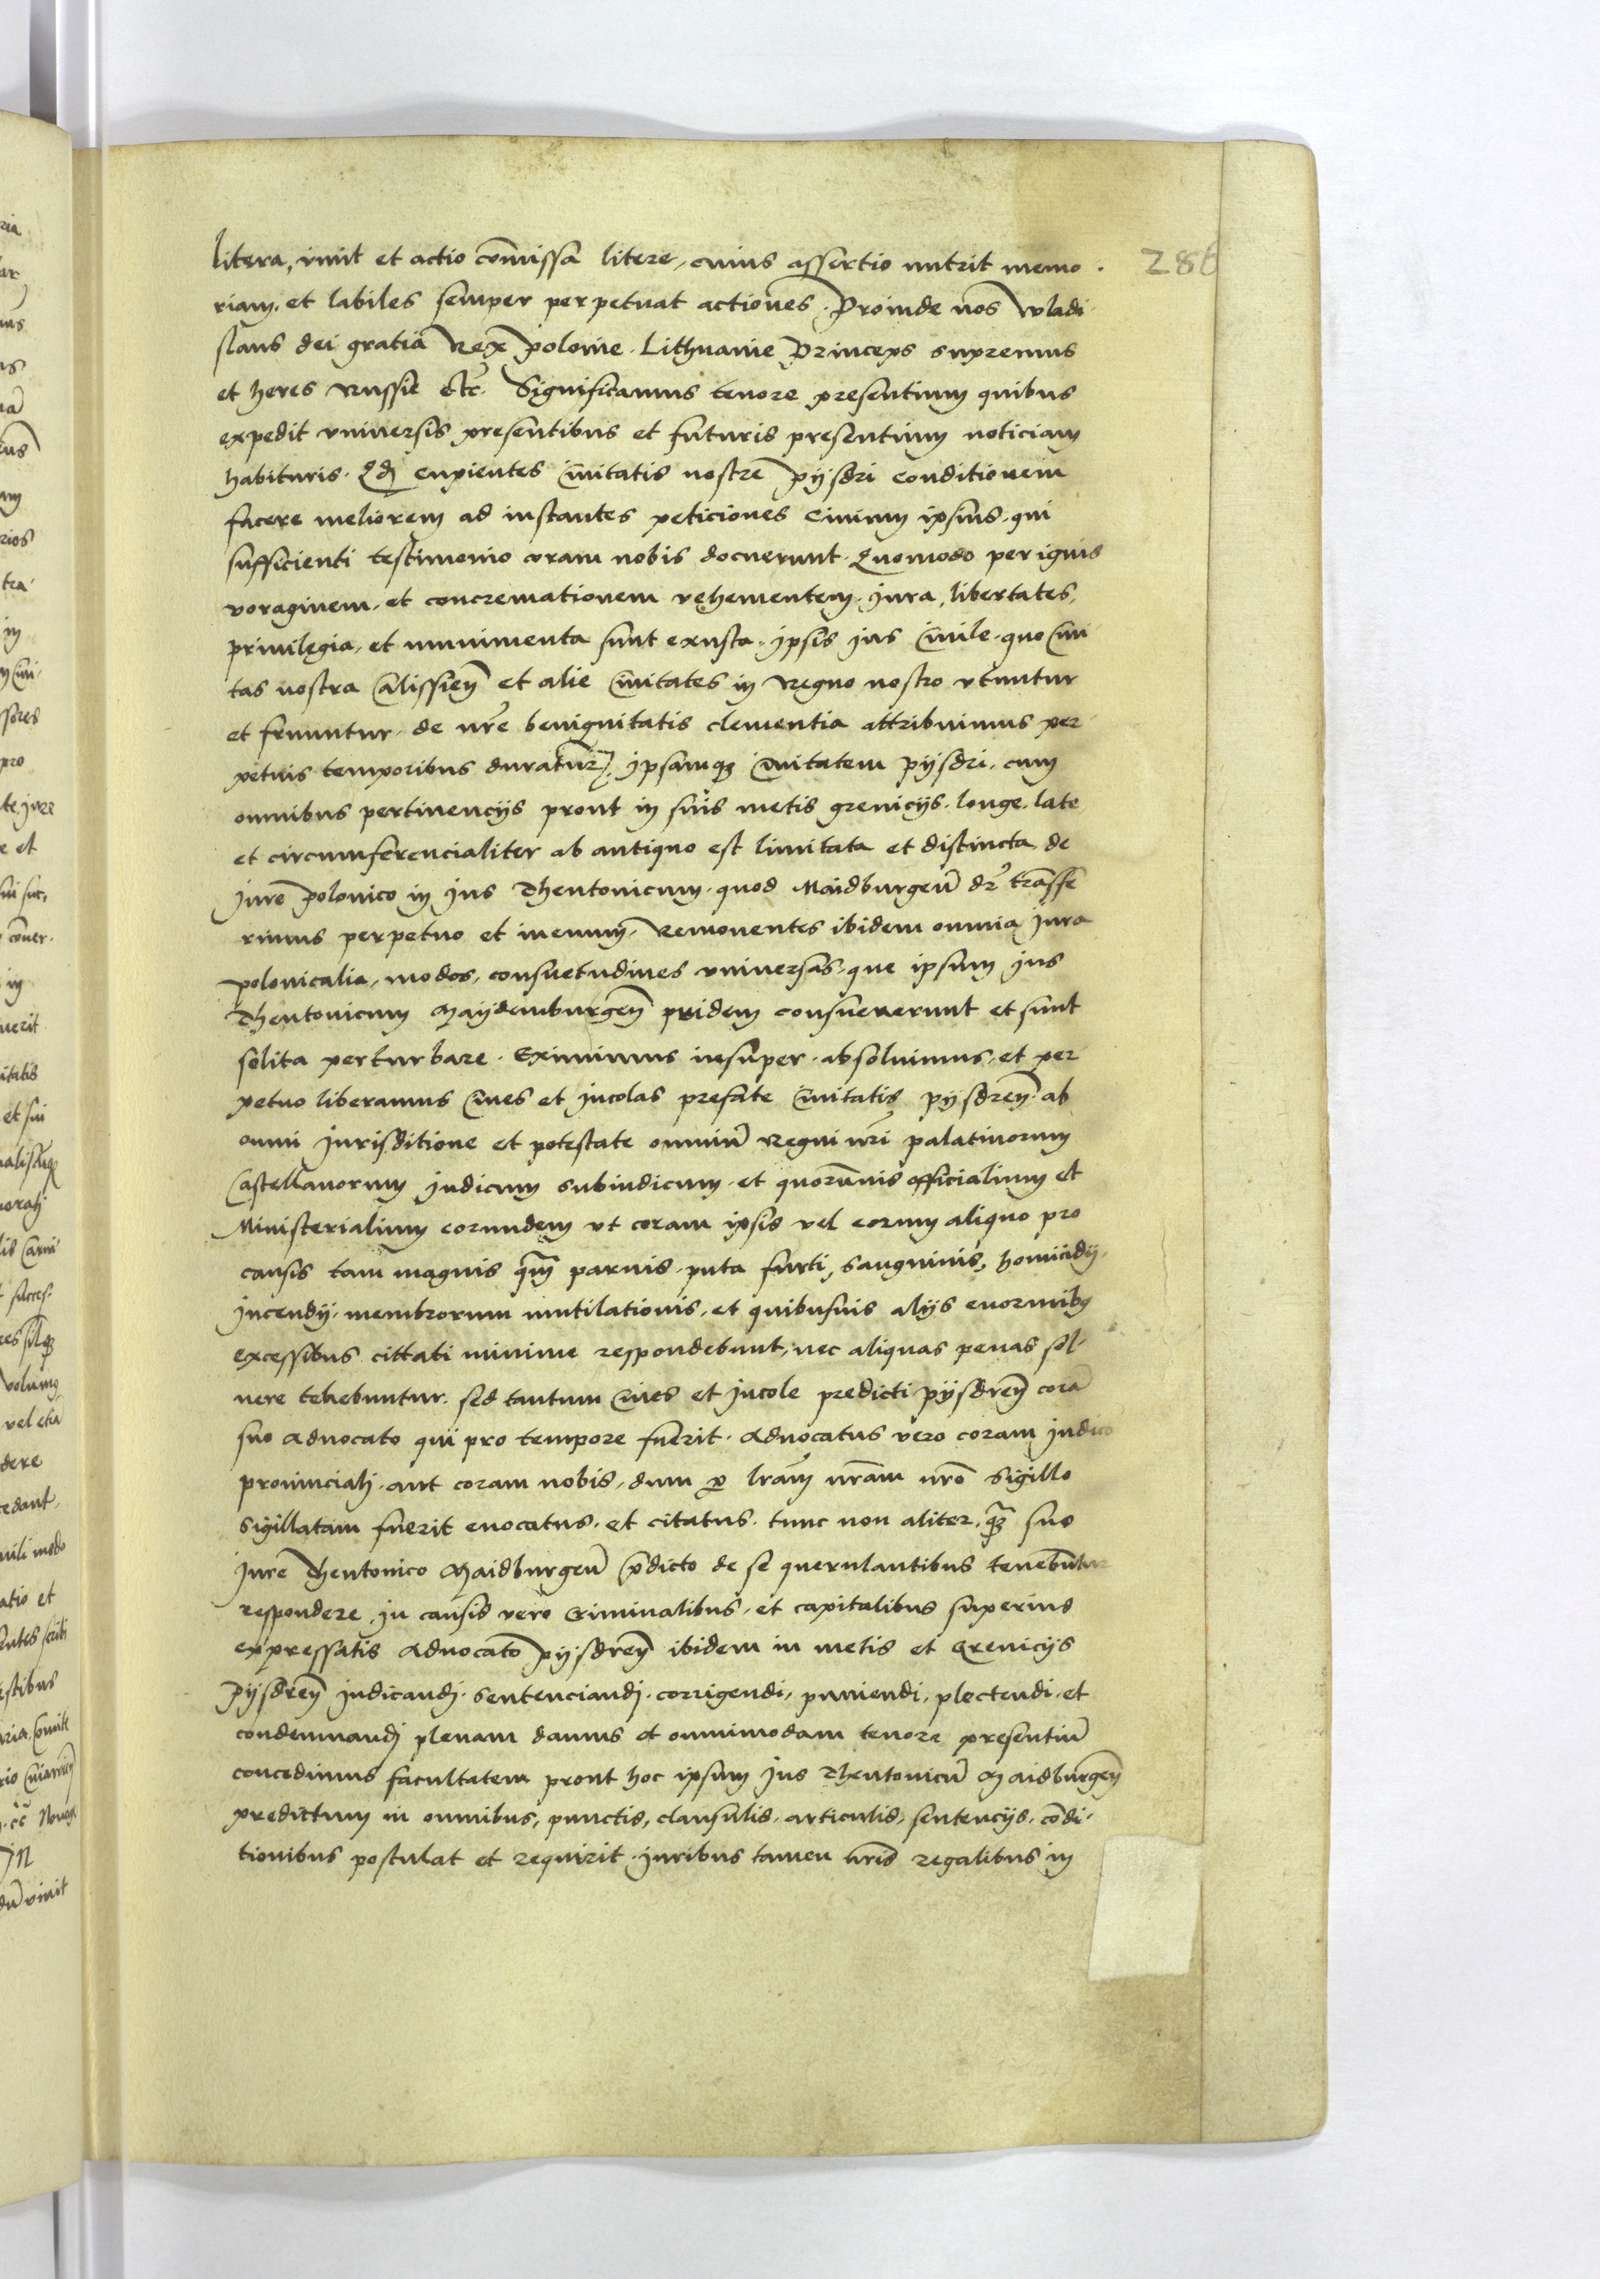 286
litera, viuit et actio com̄issa litere, cuius assertio nutrit memo-
riam, et labiles semper perpetuat actiones. Proinde nos wladi-
slaus dei gratia Rex polonie. Lithuanie Princeps supremus
et heres russie etc̄. Significamus tenore presentium quibus
expedit vniuersis presentibus et futuris presentium noticiam
habituris. Qd cupientes Ciuitatis nostre pÿsdri conditionem
facere meliorem ad instantes peticiones Ciuium ipsius. qui
sufficienti testimonio coram nobis docuerunt. Quomodo per ignis
voraginem, et concremationem vehementem. jura, libertates,
priuilegia, et munimenta sunt exusta. jpsis jus Ciuile. quo Ciui-
tas nostra Calissień et alie Ciuitates in regno nostro vtuntur
et fruuntur. de nr̄e benignitatis clementia attribuimus per-
petuis temporibus duratur. jpsamq₃ Ciuitatem pÿsdri. cum
omnibus pertinencijs prout in suis metis grenicijs. longe. late
et circumferencialiter ab antiquo est limitata et distincta. de
jure polonico in jus Thentonicum. quod Maidburgeń dr̄ tran̄sfe
rimus perpetuo et in euum. Remouentes ibidem omnia jura
polonicalia, modos, consuetudines vniuersas. que ipsum jus
Thentonicum Maÿdemburgeń pridem consueuerunt et sunt
solita perturbare. Eximimus insuper. absoluimus. et per
petuo liberamus Ciues et jncolas prefate Ciuitatis pÿsdreń. ab
omni jurisditione et potestate omniū Regni nr̄i palatinorum
Castellanorum judicum subiudicum. et quorūnuis officialium et
Ministerialium eorundem vt coram ipsis vel eorum aliquo pro
causis tam magnis qm̄ paruis. puta furti, sanguinis, homicidij.
jncendij. membrorum mutilationis, et quibusuis alijs enormibꝫ
excessibus cittati minime respondebunt, nec aliquas penas sol-
uere tenebuntur. sed tantum Ciues et jncole predicti pÿsdreń corā
suo aduocato qui pro tempore fuerit. Aduocatus vero coram judico
prouinciali. aut coram nobis, dum ꝑ lr̄am nr̄am nr̄o sigillo
sigillatam fuerit euocatus. et citatus. tunc non aliter, q̄ꝫ suo
jure Thentonico Maidburgeń p̄dicto de se querulantibus tenebuntur
respondere. jn causis vero Criminalibus. et capitalibus superius
expressatis Aduocato pÿsdreń ibidem in metis et Grenicijs
pÿsdreń judicandj. sentenciandj. corrigendi, puniendi, plectendi. et
condemnandj plenam damus et omnimodam tenore presentiū
concedimus facultatem prout hoc ipsum jus Thentonicū Maidburgeń
predictum in omnibus, punctis, clausulis. articulis, sentencijs. cōdi-
tionibus postulat et requirit. juribus tamen nr̄is regalibus in